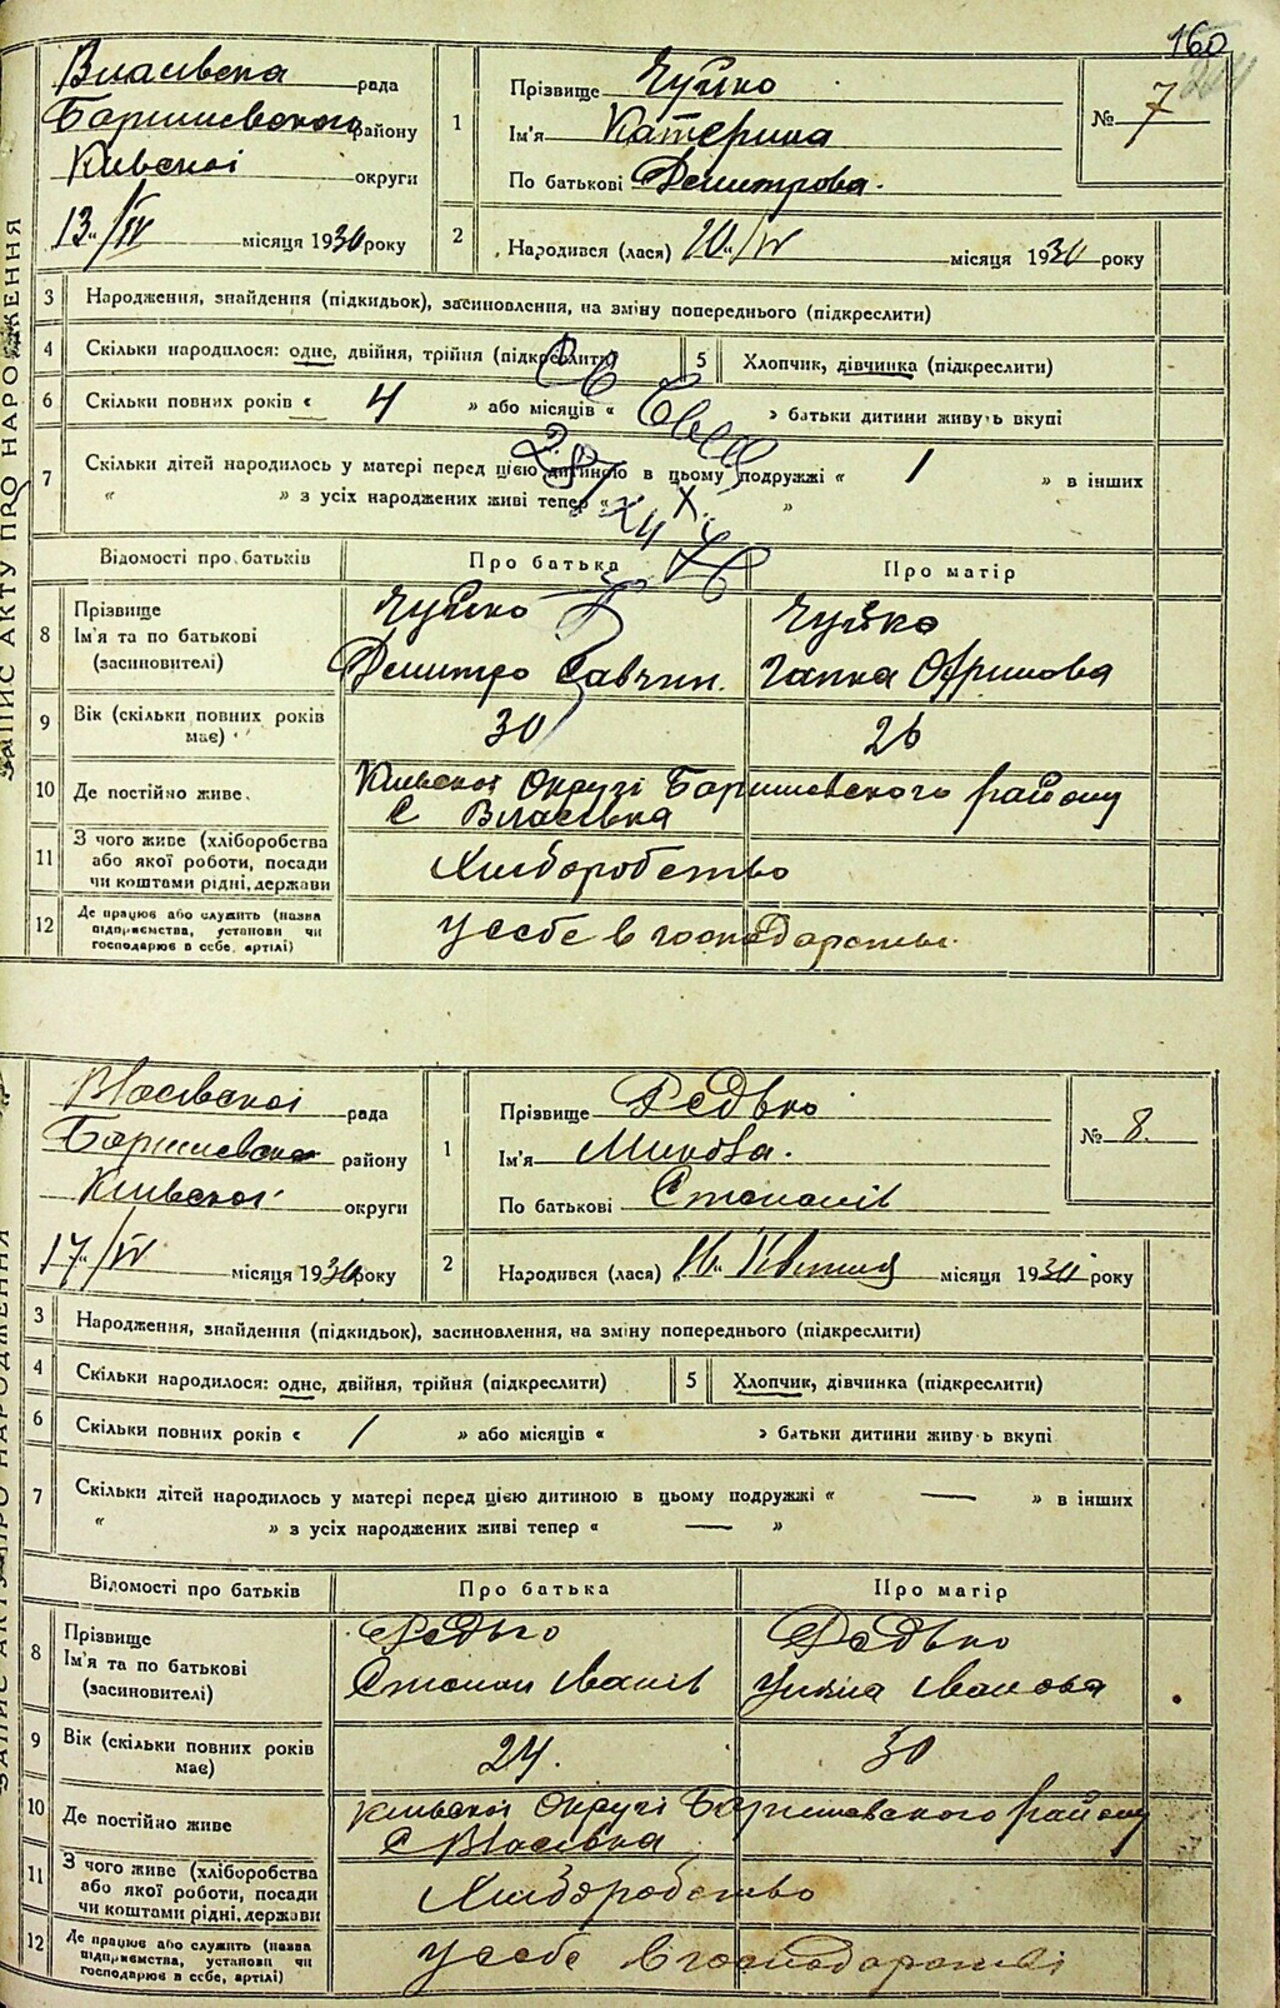 160
ЗАПИС АКТУ ПРО НАРОДЖЕННЯ
Власівска рада
Баришевского району
Київскоі округи
13/IV місяця 1930 року
1 Прізвище Чуйко
Ім'я Катерина
По батькові Демитрова.
№ 7
2 Народився (лася) 10/IV місяця 1930 року
3 Народження, знайдення (підкидьок), засиновлення, на зміну попереднього (підкреслити)
4 Скільки народилося: одне, двійня, трійня (підкреслити) 5 Хлопчик, дівчинка (підкреслити)
6 Скільки повних років « 4 » або місяців « » батьки дитини живуть вкупі
7 Скільки дітей народилось у матері перед цією дитиною в цьому подружжі « 1 » в інших
« » з усіх народжених живі тепер « »
Відомості про батьків Про батька Про матір
8 Прізвище Чуйко Чуйко
Ім'я та по батькові
(засиновителі) Демитро Савчин. Гапка
9 Вік (скільки повних років має) 30 26
10 Де постійно живе Київскоі Округі Баришевского району
С Власівка
11 З чого живе (хліборобства
або якої роботи, посади
чи коштами рідні, держави Хліборобство
12 Де працює або служить (назва
підприємства, установи чи
господарює в себе, артілі) у себе в господарстві.
ЗАПИС АКТУ ПРО НАРОДЖЕННЯ
Власівскоі рада
Баришевска району
Київскоі округи
17/IV місяця 1930 року
1 Прізвище Редько
Ім'я Микола.
По батькові Степанів
№ 8.
2 Народився (лася) „ Квітня місяця 1930 року
3 Народження, знайдення (підкидьок), засиновлення, на зміну попереднього (підкреслити)
4 Скільки народилося: одне, двійня, трійня (підкреслити) 5 Хлопчик, дівчинка (підкреслити)
6 Скільки повних років « 1 » або місяців « » батьки дитини живуть вкупі
7 Скільки дітей народилось у матері перед цією дитиною в цьому подружжі « — » в інших
« » з усіх народжених живі тепер « — »
Відомості про батьків Про батька Про матір
8 Прізвище Редько Редько
Ім'я та по батькові
(засиновителі) Степан Іванів Уляна Іванова
9 Вік (скільки повних років має) 24. 30
10 Де постійно живе Київскоі Округі Баришевского району
С Власівка
11 З чого живе (хліборобства
або якої роботи, посади
чи коштами рідні, держави Хліборобство
12 Де працює або служить (назва
підприємства, установи чи
господарює в себе, артілі) у себе в господарстві